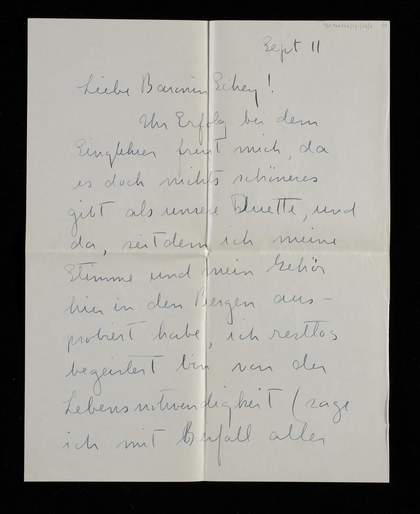 Sept 11
Liebe Baronin Schey!
Ihr Erfolg bei dem
freut mich, da
es doch nichts schöneres
gibt als unsere Duette, und
da, seitdem ich meine
Stimme und mein Gehör
hier in den Bergen aus-
probiert habe, ich restlos
begeistert bin von der
Lebensnotwendigkeit (sage
ich mit Beifall aller